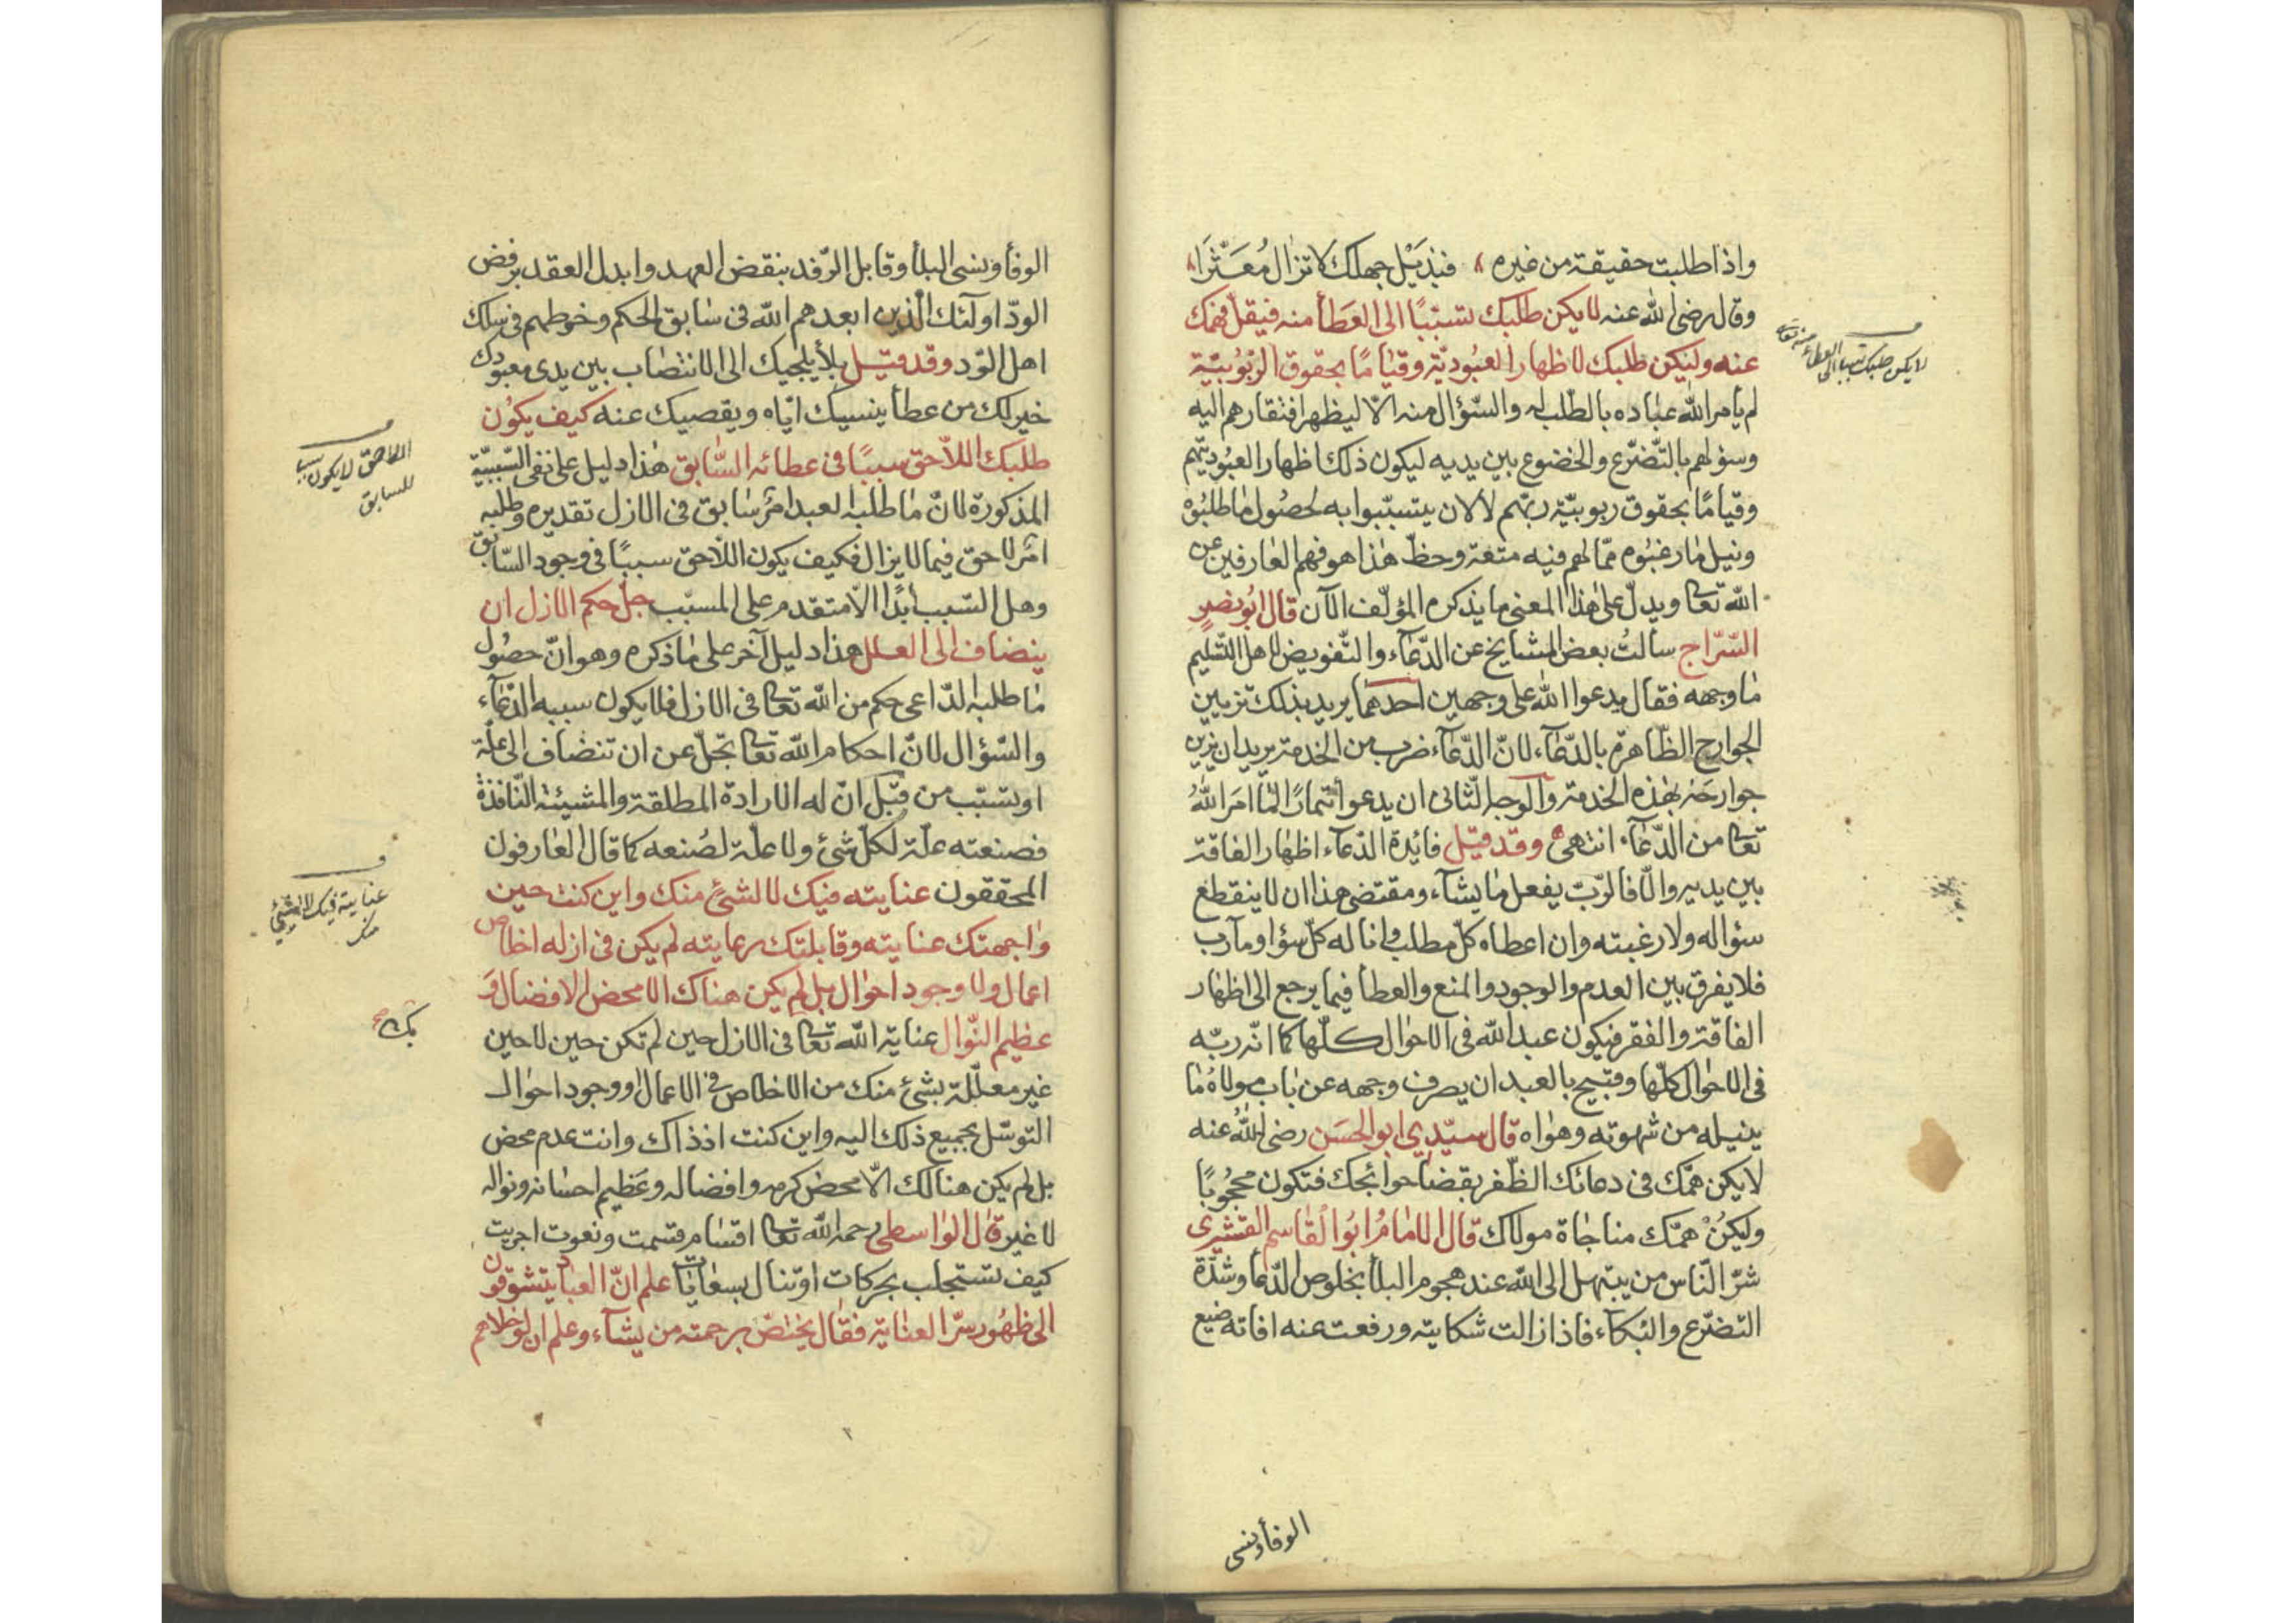 واذا طلبت حقيقة من غيره فبذيل جهلك لا تزال معثرا
وقال رضى الله عنه لا يكن طلبك تسببًا الى العطأ منه فيقل فهمك
عنه وليكن طلبك لاظهار العبودية وقيامًا بحقوق الربوبية
لم يأمر الله عباده بالطلب له والسؤال منه الا ليظهر افتقارهم اليه
وسؤلهم بالتضرع والخضوع بين يديه ليكون ذلك اظهار العبوديتهم
وقيامًا بحقوق ربوبية ربهم لا لان يتسببوا به لحصول ما طلبوه
ونيل ما رغبوه مما لهم فيه متعة وحظ هذا هو فهم العارفين عن
الله تعالى ويدل على هذا المعنى ما يذكره المؤلف الآن قال ابو نصر
السراج سالت بعض المشايخ عن الدعاء والتفويض لاهل التسليم
ما وجهه فقال يدعوا الله على وجهين احدهما يريد بذلك تزيين
الجوارح الظاهرة بالدعاء لان الدعاء ضرب من الخدمة يريد ان يزين
جوارحه بهذه الخدمة والوجه الثانى ان يدعو أتمارًا لما امر الله
تعالى من الدعاء انتهى وقد قيل فائدة الدعاء اظهار الفاقة
بين يديه والا فالرب يفعل ما يشاء ومقتضى هذا ان لا ينقطع
سؤاله ولا رغبته وان اعطاه كل مطلب وانا له كل سؤا ومآرب
فلا يفرق بين العدم والوجود والمنع والعطأ فيما يرجع الى اظهار
الفاقة والفقر فيكون عبد الله فى الاحوال كلها كما انه ربه
فى الاحوال كلها وقبيح بالعبد ان يصرف وجهه عن باب مولاه ما
ينيله من شهوته وهواه قال سيدى ابو الحسن رضى الله عنه
لا يكن همك فى دعائك الظفر بقضا حوائجك فتكون محجوبًا
وليكن همك مناجاة مولاك قال الامام ابو القاسم القشيرى
شر الناس من يبتهل الى الله عند هجوم البلأ بخلوص الدعأ وشدة
التضرع والبكآء فاذا زالت شكايته ورفعت عنه افاته ضيع
الوفأ ونسى
لا يكن طلبك تسببا الى العطاء منه تعالى
الوفأ ونسى البلأ وقابل الرفد بنقض العهد وابدل العقد برفض
الود اولئك الذين ابعدهم الله فى سابق الحكم وخوطهم فى سلك
اهل الود وقد قيل بلأ يلجيك الى الانتصاب بين يدى معبودك
خير لك من عطأ ينسيك اياه ويقصيك عنه كيف يكون
طلبك اللاحق سببًا فى عطائه السابق هذا دليل على نفى السببية
المذكورة لان ما طلبه العبد امر سابق فى الازل تقديره وطلبه
امر لاحق فيما لا يزال فكيف يكون اللاحق سببًا فى وجود السابق
وهل السبب ابدًا الا متقدم على المسبب جل حكم الازل ان
ينضاف الى العلل هذا دليل آخر على ما ذكره وهو ان حصول
ما طلبه الداعى حكم من الله تعالى فى الازل فلا يكون سببه الدعآء
والسؤال لان احكام الله تعالى تجل عن ان تنضاف الى علة
او بسبب من قبل ان له الارادة المطلقة والمشيئة النافذة
فصنعته علة لكل شئ ولا علة لصنعه كما قال العارفون
المحققون عنايته فيك لا لشئ منك واين كنت حين
واجهتك عنايته وقابلتك رعايته لم يكن فى ازله اخلاص
اعمال ولا وجود احوال بل لم يكن هناك الا محض الافضال و
عظيم النوال عناية الله تعالى فى الازل حين لم تكن حين لا حين
غير معللة بشئ منك من الاخلاص فى الاعمال ووجود احوال
التوسل بجميع ذلك اليه واين كنت اذ ذاك وانت عدم محض
بل لم يكن هنالك الا محض كرمه وافضاله وعظيم احسانه ونواله
لا غير قال الواسطى رحمه الله تعالى اقسام قسمت ونعوت اجريت
كيف تستجلب بحركات او تنال بسعايات علم ان العباد يتشوقون
الى ظهور سر العناية فقال يختص برحمته من يشآء وعلم ان لو خلاهم
اللاحق لا يكون سببا
للسابق
عنايته فيك لا لشئ
منك